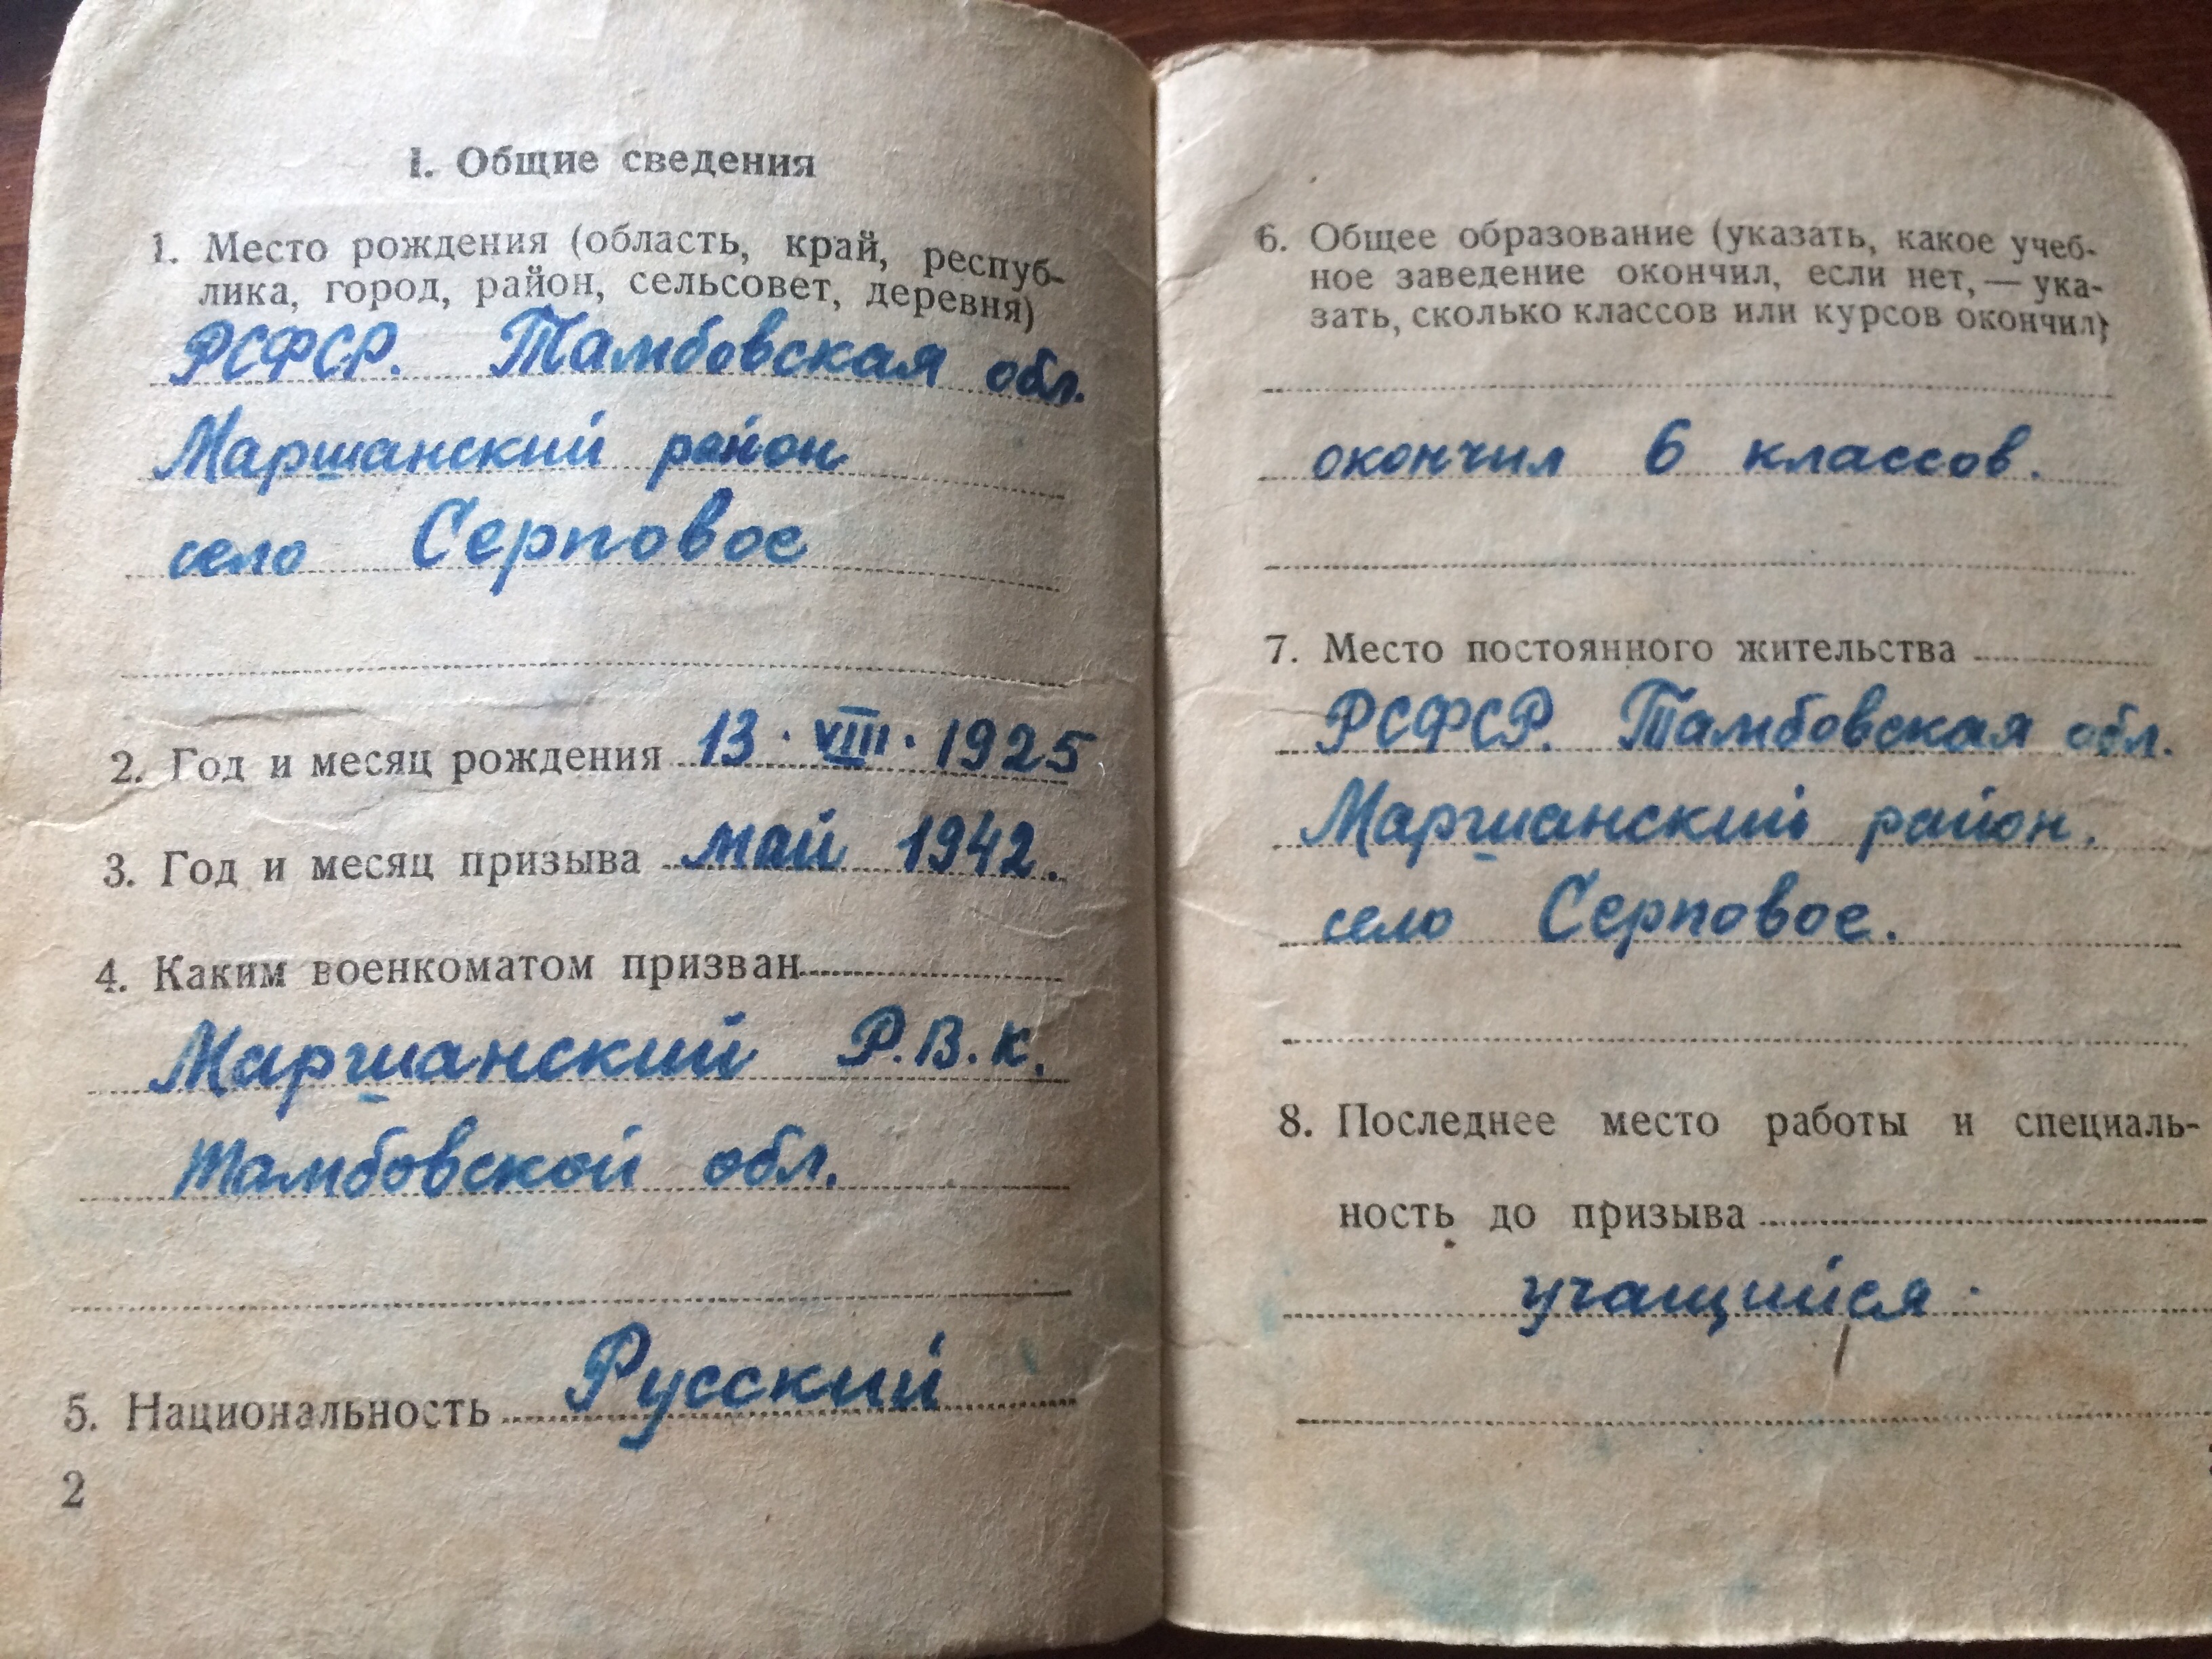 1. Общие сведения
1. Место рождения (область, край, респуб-
лика, город, район, сельсовет, деревня)
РСФСР. Тамбовская обл.
Маршанский район
село Серповое
2. Год и месяц рождения 13·VIII·1925
3. Год и месяц призыва май 1942.
4. Каким военкоматом призван
Маршанский Р.В.К.
Тамбовской обл.
5. Национальность Русский
2
6. Общее образование (указать, какое учеб-
ное заведение окончил, если нет, — ука-
зать, сколько классов или курсов окончил)
окончил 6 классов.
7. Место постоянного жительства
РСФСР. Тамбовская обл.
Маршанский район.
село Серповое.
8. Последнее место работы и специаль-
ность до призыва
учащийся.